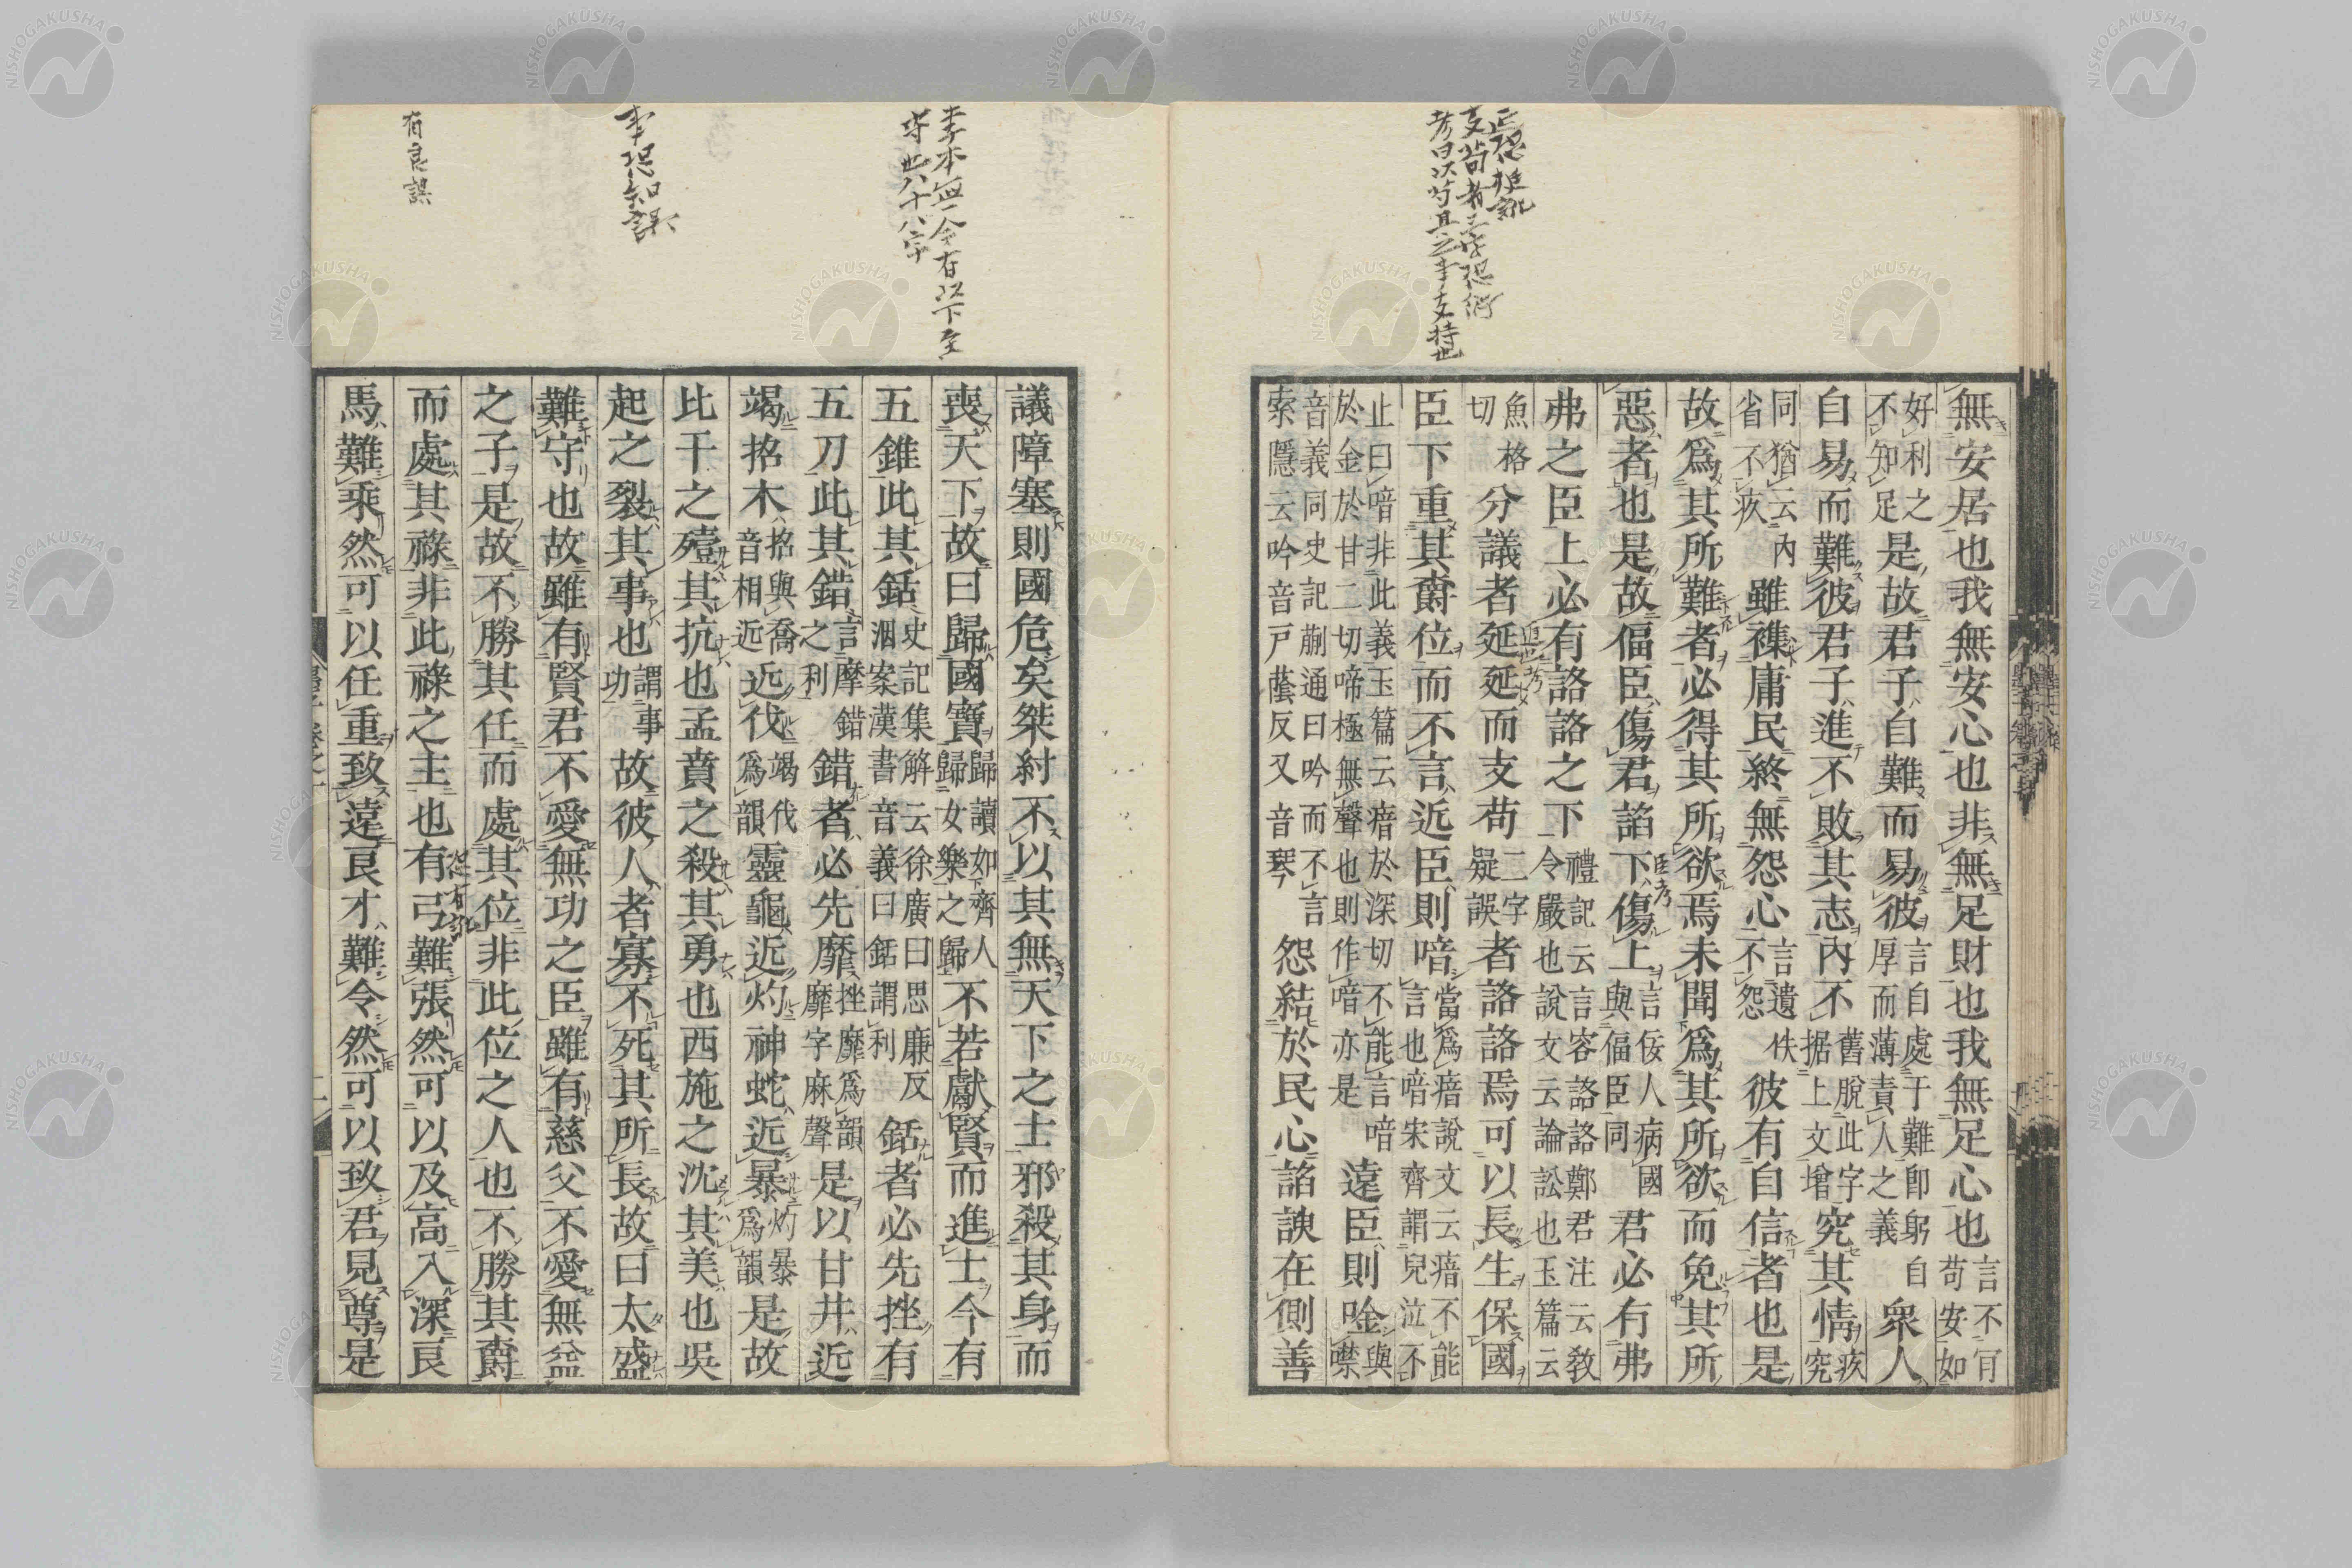 支苟者三字恐衍
無安居也我無安心也非無足財也我無足心也言不肎苟安如
好利之不知足是故君子自難而易彼言自處于難即躬自厚而薄責人之義衆人
自易而難彼君子進不敗其志內不舊脫此字据上文增究其情疚究
同猶云內省不疚雖襍庸民終無怨心言遺佚不怨彼有自信者也是
故爲其所難者必得其所欲焉未聞爲其所欲而免其所
惡者也是故偪臣傷君諂下傷上言佞人病國與偪臣同君必有弗
弗之臣上必有詻詻之下禮記云言容詻詻鄭君注云敎令嚴也說文云論訟也玉篇云
魚格切分議者延延而支苟二字疑誤者詻詻焉可以長生保國
臣下重其爵位而不言近臣則喑當爲瘖說文云瘖不能言也喑宋齊謂兒泣不
止曰喑非此義玉篇云瘖於深切不能言喑於金於甘二切啼極無聲也則作喑亦是遠臣則唫與噤
音義同史記蒯通曰吟而不言索隱云吟音戸蔭反又音琴怨結於民心諂諛在側善
李本無今有以下至
事恐知誤
有良誤
議障塞則國危矣桀紂不以其無天下之士邪殺其身而
喪天下故曰歸國寶歸讀如齊人歸女樂之歸不若獻賢而進士今有
五錐此其銛史記集解云徐廣曰思廉反駰案漢書音義曰銛謂利銛者必先挫有
五刀此其錯言摩錯之利錯者必先靡挫靡爲韻靡字麻聲是以甘井近
竭招木招與喬音相近近伐竭伐爲韻靈龜近灼神蛇近暴灼暴爲韻是故
比干之殪其抗也孟賁之殺其勇也西施之沈其美也吳
起之裂其事也謂事功故彼人者寡不死其所長故曰太盛
難守也故雖有賢君不愛無功之臣雖有慈父不愛無益
之子是故不勝其任而處其位非此位之人也不勝其爵
而處其祿非此祿之主也有弓難張然可以及高入深良
馬難乘然可以任重致遠良才難令然可以致君見尊是
NISHOGAKUSHA